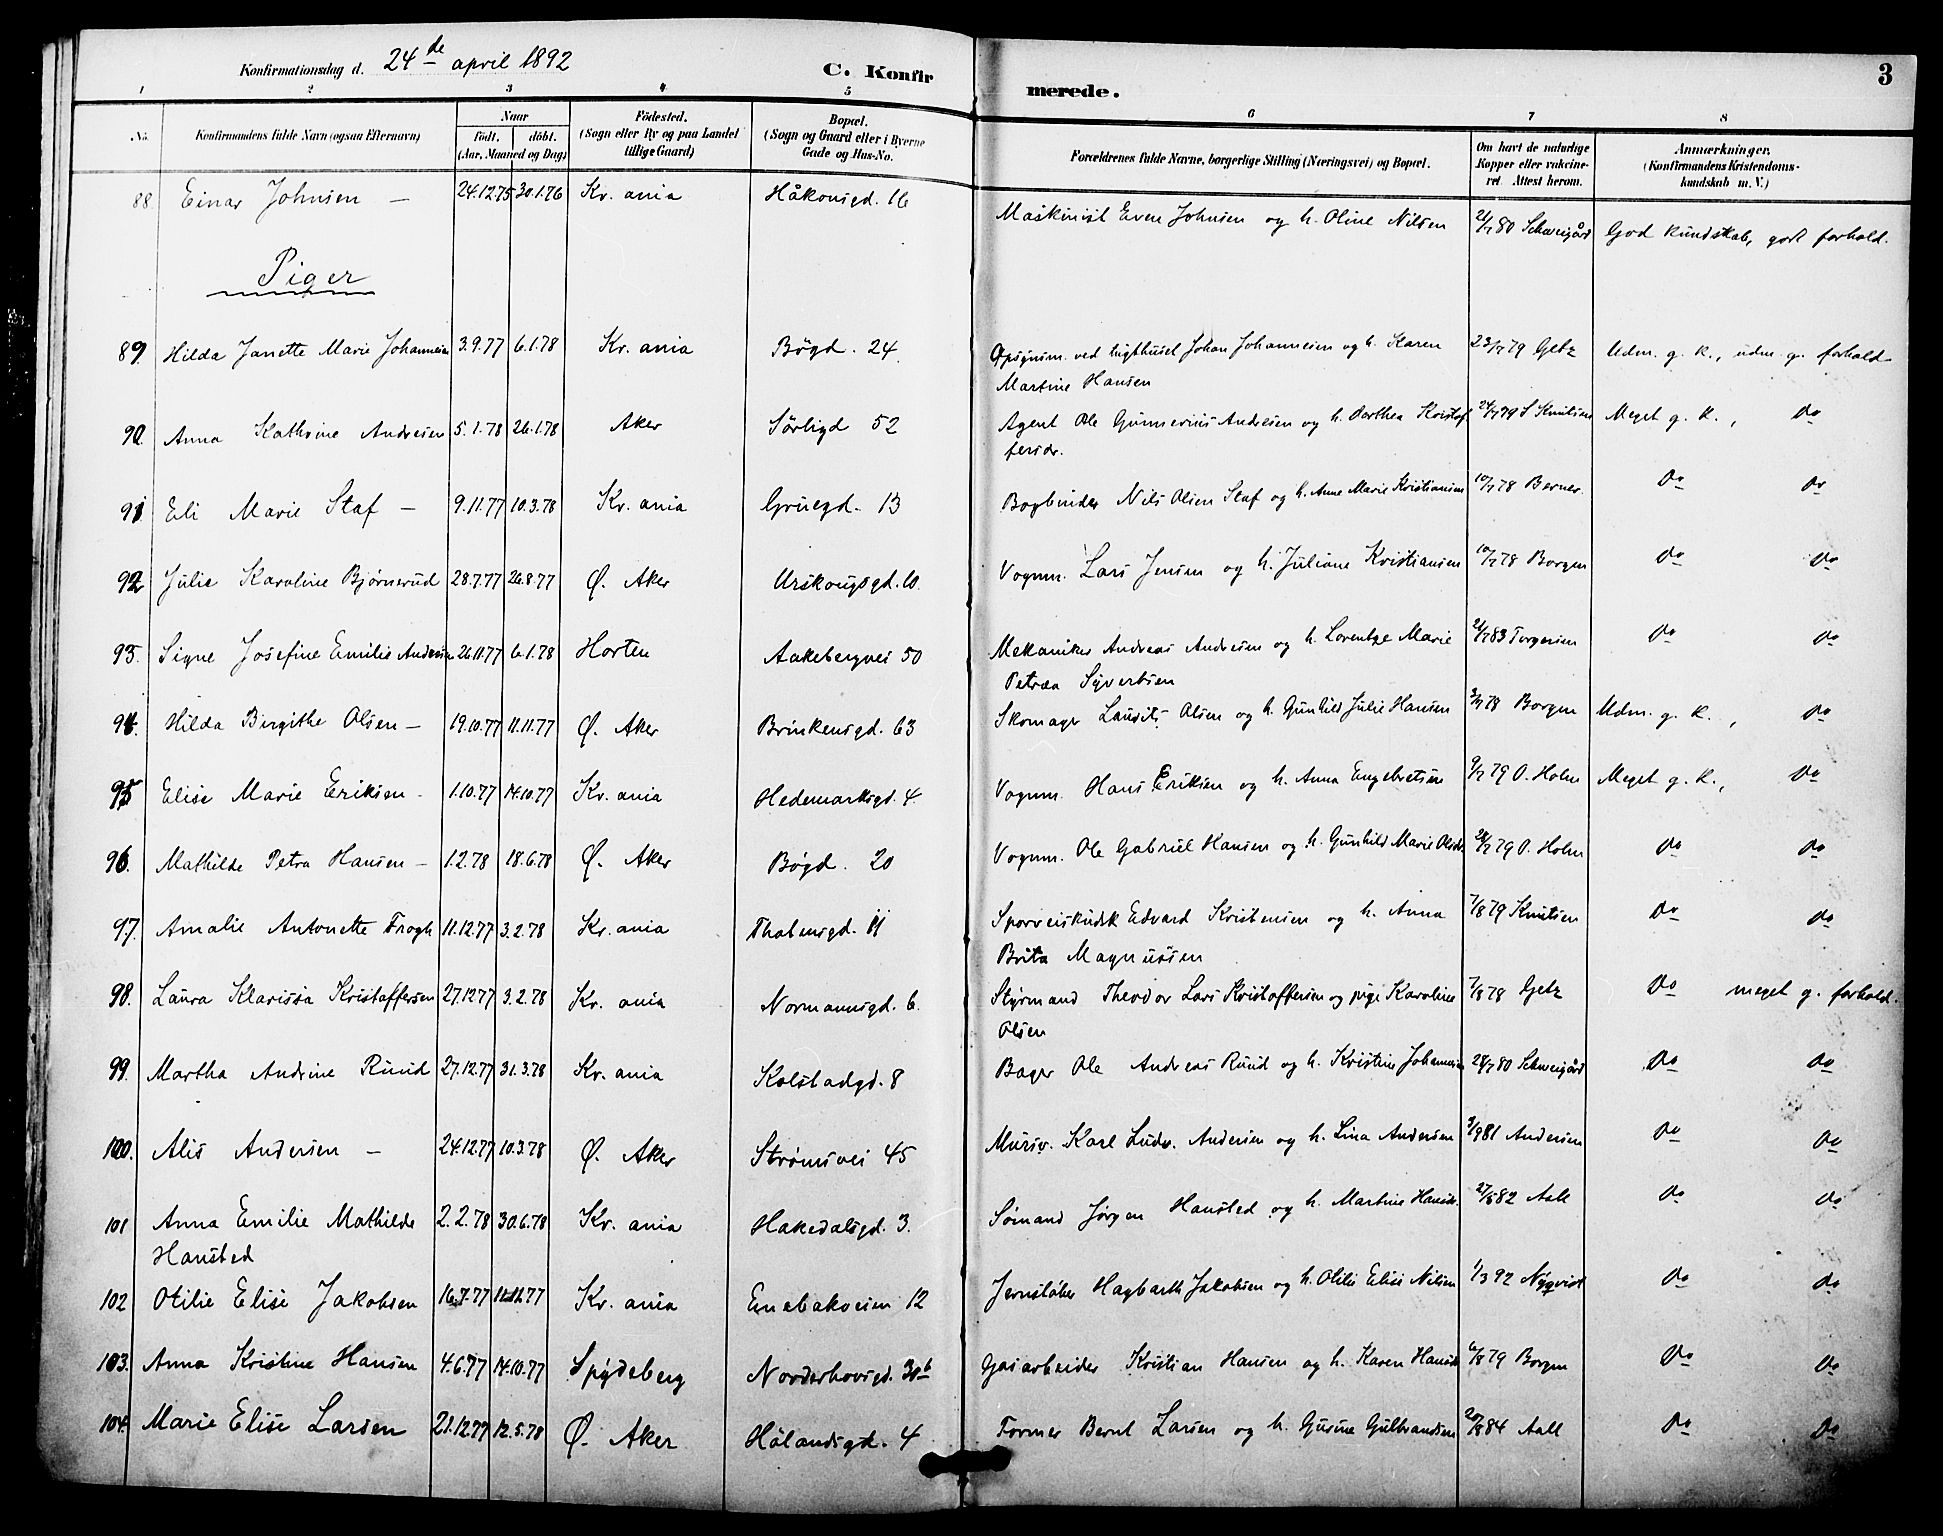 Konfirmationsdag d. 24de april 1892
C. Konfir
merede.
3
1 2 3 4 5 6 7 8
No.
Konfirmandens fulde Navn (ogsaa Efternavn)
Naar
Födt. döbt.
(Aar, Maaned og Dag)
Födested.
(Sogn eller By og paa Landet
tillige Gaard)
Bopæl.
(Sogn og Gaard eller i Byerne
Gade og Hus-No.
Forældrenes fulde Navne, borgerlige Stilling (Næringsvei) og Bopæl.
Om havt de naturlige
Kopper eller vakcine-
ret. Attest herom.
Anmærkninger.
(Konfirmandens Kristendoms-
kundskab m. V.)
88 Einar Johnsen — 24.12.75 30.1.76 Kr. ania Håkonsgd. 16 Maskinist Even Johnsen og h. Oline Nilsen 21/7 80 Schweigård God kundskab, godt forhold.
Piger
89 Hilda Janette Marie Johannesen 3.9.77 6.1.78 Kr. ania Bøgd. 24. Opsynsm. ved tugthuset Johan Johannesen og h. Karen 23/7 79 Getz Udm. g. k., udm. g. forhold
Martine Hansen
90. Anna Kathrine Andresen 5.1.78 26.1.78 Aker Sörligd 52 Agent Ole Gunnerius Andresen og h. Dorthea Kristof 24/7 79 S Knutsen Meget g. k., do
fersdr.
91 Eli Marie Staf — 9.11.77 10.3.78 Kr. ania Grüegd. 13 Bogbinder Nils Olsen Staf og h. Anne Marie Kristiansen 10/7 78 Berner do do
92 Julie Karoline Bjørnerud 28.7.77 26.8.77 Ø. Aker Urskougsgd. 10. Vognm. Lars Jensen og h. Juliane Kristiansen 10/7 78 Borgen do do
93. Signe Josefine Emilie Andersen 26.11.77 6.1.78 Horten Aakebergvei 50 Mekaniker Andreas Andresen og h. Lorentze Marie 21/7 83 Torgersen do do
Petrea Syvertsen
94. Hilda Birgithe Olsen — 19.10.77 11.11.77 Ø. Aker Brinkensgd. 63 Skomager Laurits Olsen og h. Gunhild Julie Hansen 3/7 78 Borgen Udm. g. k., do
95 Elise Marie Eriksen - 1.10.77 14.10.77 Kr. ania Hedemarksgd. 4. Vognm. Hans Eriksen og h. Anna Engebretsen 9/7 79 O. Holm Meget g. k., do
96. Mathilde Petra Hansen — 1.2.78 18.6.78 Ø. Aker Bøgd. 20 Vognm. Ole Gabriel Hansen og h. Gunhild Marie Olsdr. 28/7 79 O. Holm do do
97. Amalie Antonette Trogh 11.12.77 3.2.78 Kr. ania Tholensgd. 11 Sporveiskudsk Edvard Kristensen og h. Anna 7/8 79 Knutsen do do
Brita Magnussen
98. Laura Klarissa Kristoffersen 27.12.77 3.2.78 Kr. ania Normannsgd. 6. Styrmand Theodor Lars Kristoffersen og pige Karoline 7/8 78 Getz do meget g. forhold.
Olsen
99. Martha Andrine Ruud 27.12.77 31.3.78 Kr. ania Kolstadgd. 8 Bager Ole Andreas Ruud og h. Kristine Johannesen 28/7 80 Schweigård do do
100. Alis Andersen — 24.12.77 10.3.78 Ø. Aker Strömsvei 45 Mursv. Karl Ludv. Andersen og h. Lina Andersen 3/9 81 Andersen do do
101 Anna Emilie Mathilde 2.2.78 30.6.78 Kr. ania Hakedalsgd. 3. Sömand Jörgen Hansted og h. Martine Hansdr. 27/8 82 Aall do do
Hansted
102 Otilie Elise Jakobsen 16.7.77 11.11.77 Kr. ania Enebakveien 12 Jernstøber Hagbarth Jakobsen og h. Otilie Elise Nilsen 1/3 92 Nyqvist do do
103. Anna Kristine Hansen 4.6.77 14.10.77 Spydeberg Norderhovsgd. 30b Gasarbeider Kristian Hansen og h. Karen Hansdr 6/8 79 Borgen do do
104. Marie Elise Larsen 21.12.77 12.5.78 Ø. Aker Hölandsgd. 4 Former Bernt Larsen og h. Gusine Gulbrandsen 20/8 84 Aall do do